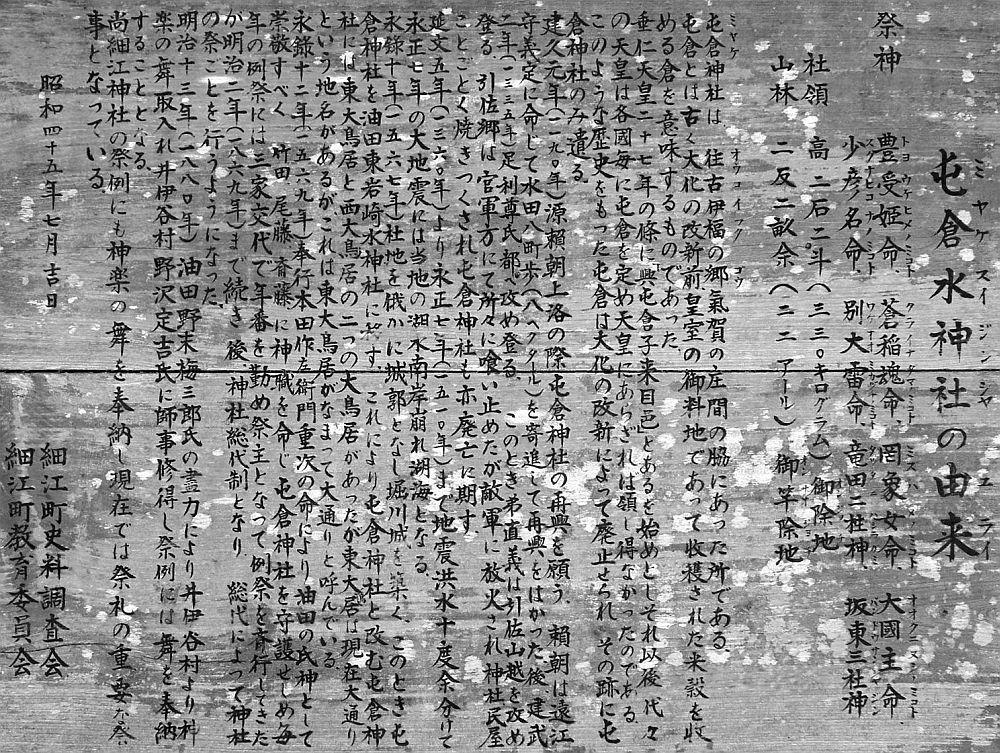 屯倉水神社の由来
ミヤケスイジンシャユライ
祭神　豊受姫命、蒼稲魂命、罔象女命、大國主命、
少彦名命、別大雷命、竜田二柱神、坂東三社神
社領　高二石二斗（三三〇キログラム）御除地
山林　二反二畝余（二二アール）御竿除地
屯倉神社は、往古伊福の郷氣賀の庄間の脇にあった所である。
屯倉とは古く大化の改新前皇室の御料地であって收穫された米穀を收
める倉を意味するものであった。
垂仁天皇二十七年の條に興屯倉于来目邑とあるを始めとしそれ以後代々
の天皇は各國毎に屯倉を定め天皇にあらざれば領し得なかったのである。
このような歴史をもった屯倉は大化の改新によって廃止せられ、その跡に屯
倉神社のみ遺る。
建久元年（一一九〇年）源頼朝上洛の際屯倉神社の再興を願う、頼朝は遠江
守義定に命して水田八町歩（八ヘクタール）を寄進して再興をはかった、後建武
二年（一三三五年）足利尊氏都へ攻め登る。このとき弟直義は引佐山越を攻め
登る、引佐郷は官軍方にて所々に喰い止めたが敵軍に放火され神社民屋
ことごとく焼きつくされ屯倉神社も亦廃亡に期す。
延文五年（一三六〇年）より永正七年（一五一〇年）まで地震洪水十度余分けて
永正七年の大地震には当地の湖水南岸崩れ湖海となる。
永錄十年（一五六七年）社地を俄かに城郭となし堀川城を築く、このとき屯
倉神社を油田東岩崎水神社に移す。これにより屯倉神社と改む屯倉神
社には東大鳥居と西大鳥居の二つの大鳥居があったが東大鳥居は現在大通り
という地名があるがこれは東大鳥居がなまって大通りと呼んでいる。
永錄十二年（一五六九年）奉行本田作左衛門重次の命により油田の氏神として
崇敬すべく、竹田、尾藤、斉藤、に神職を命じ屯倉神社を守護せしめ毎
年の例祭には三家交代で年番を勤め祭主となって例祭を斉行してきた
が明治二年（一八六九年）まで続き、後、神社総代制となり、総代によって神社
の祭ごとを行うようになった。
明治十三年（一八八〇年）油田野末梅三郎氏の盡力により井伊谷村より神
楽の舞取入れ井伊谷村、野沢定吉氏に師事修得し祭例には舞を奉納
することとなる。
尚細江神社の祭例にも神楽の舞を奉納し現在では祭礼の重要な祭
事となっている。
昭和四十五年七月吉日
細江町史料調査会
細江町教育委員会